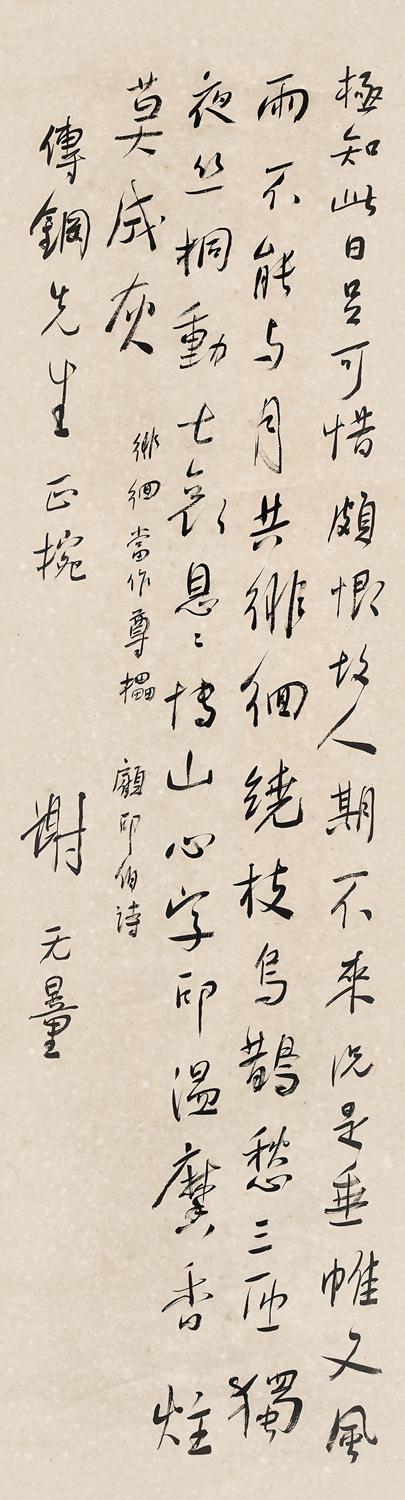 極知此日足可惜頗恨故人期不來況是垂帷又風
雨不能与月共徘徊繞枝烏鵲愁三匝獨
夜丝桐動七哀息〻博山心字印溫黁香炷
莫成灰
徘徊當作尊櫑 顧印伯詩
傳銅先生正捥 謝无量